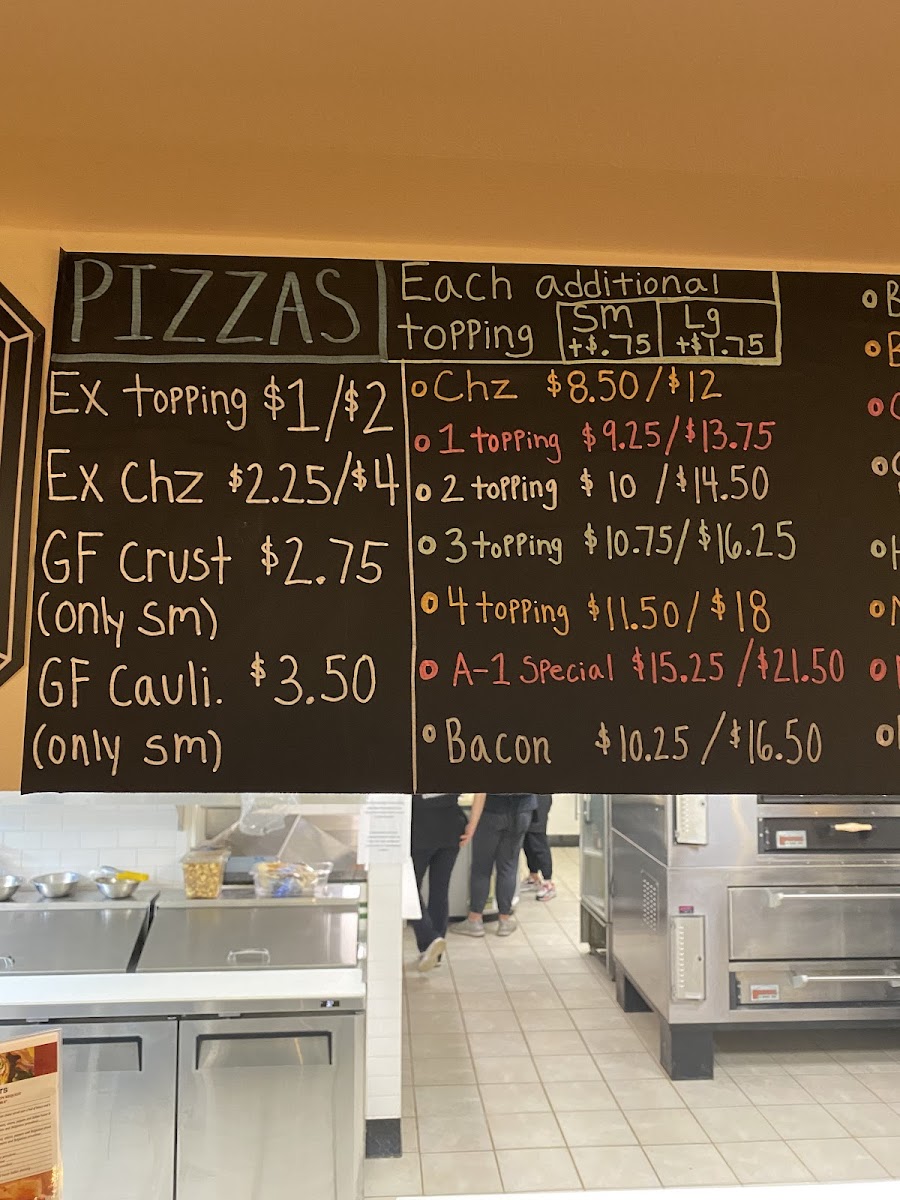 PIZZAS
Each additional
topping
Sm
+$.75
Lg
+$1.75
Ex topping $1/$2
Ex Chz $2.25/$4
GF Crust $2.75
(only sm)
GF Cauli. $3.50
(only sm)
Chz $8.50/$12
1 topping $9.25/$13.75
2 topping $10/$14.50
3 topping $10.75/$16.25
4 topping $11.50/$18
A-1 Special $15.25/$21.50
Bacon $10.25/$16.50